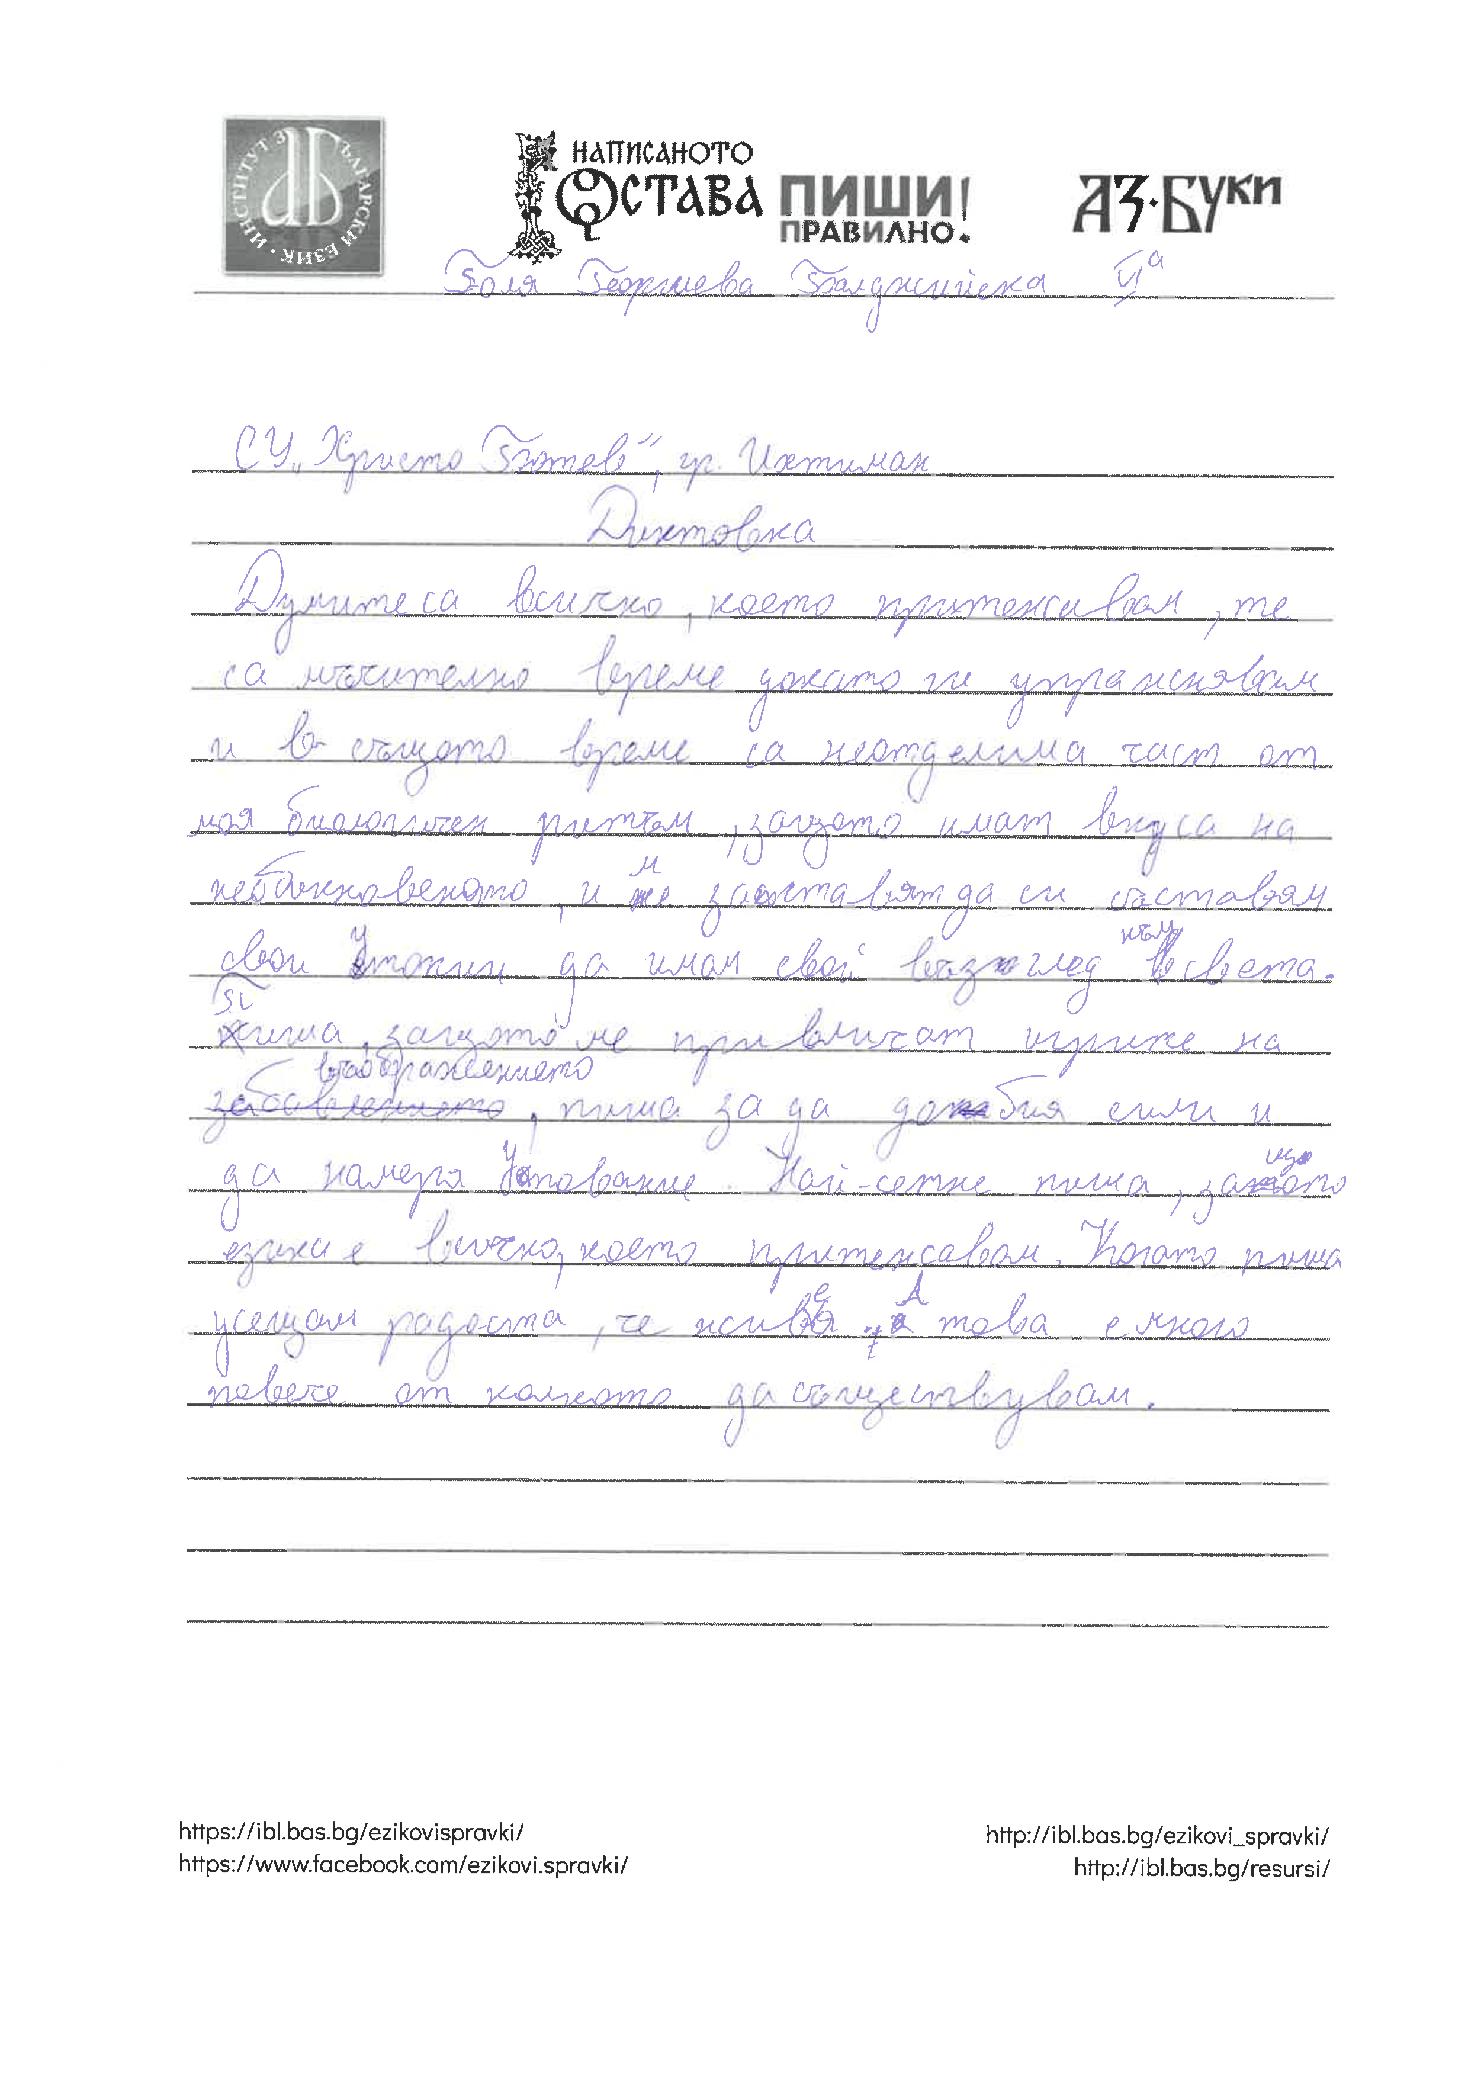 ИНСТИТУТ ЗА БЪЛГАРСКИ ЕЗИК
НАПИСАНОТО
ОСТАВА ПИШИ!
ПРАВИЛНО.
АЗ·БУКИ
Боля Георгиева Балджийска VIа
СУ „Христо Ботев“, гр. Ихтиман
Диктовка
Думите са всичко, което притежавам, те
са мъчително време докато ги упражнявам
и в същото време са неотделима част от
моя биологичен ритъм, защото имат вкуса на
необикновеното, и ме заставят да си съставям
свои утопии да имам свой възглед към света.
Пиша, защото ме привличат игрите на
въображението, пиша за да добия сили и
да намеря упование. Най-сетне пиша, защото
езика е всичко, което притежавам. Когато пиша
усещам радостта, че живея. А това е много
повече от колкото да съществувам.
https://ibl.bas.bg/ezikovispravki/
https://www.facebook.com/ezikovi.spravki/
http://ibl.bas.bg/ezikovi_spravki/
http://ibl.bas.bg/resursi/